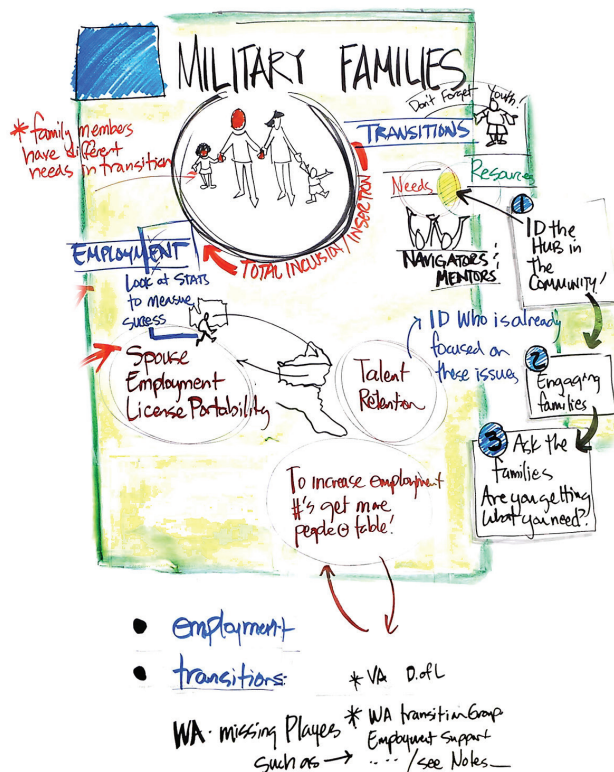 MILITARY FAMILIES
Don't Forget Youth!
* family members
have different
needs in transition
TRANSITIONS
Resources
Needs
NAVIGATORS &
MENTORS
TOTAL INCLUSION/INSERTION
EMPLOYMENT
Look at STATS
to measure
success
Spouse
Employment
License Portability
Talent
Retention
ID Who is already
focused on
these issues
1
ID the
HUB in
The
COMMUNITY!
2
Engaging
families
3 Ask the
families
Are you getting
What you need?
To increase employment
#'s get more
people @ table!
• employment
• transitions:
* VA D.of L
WA. missing Playes
such as →
* WA transition Group
Employment Support
.... /see Notes